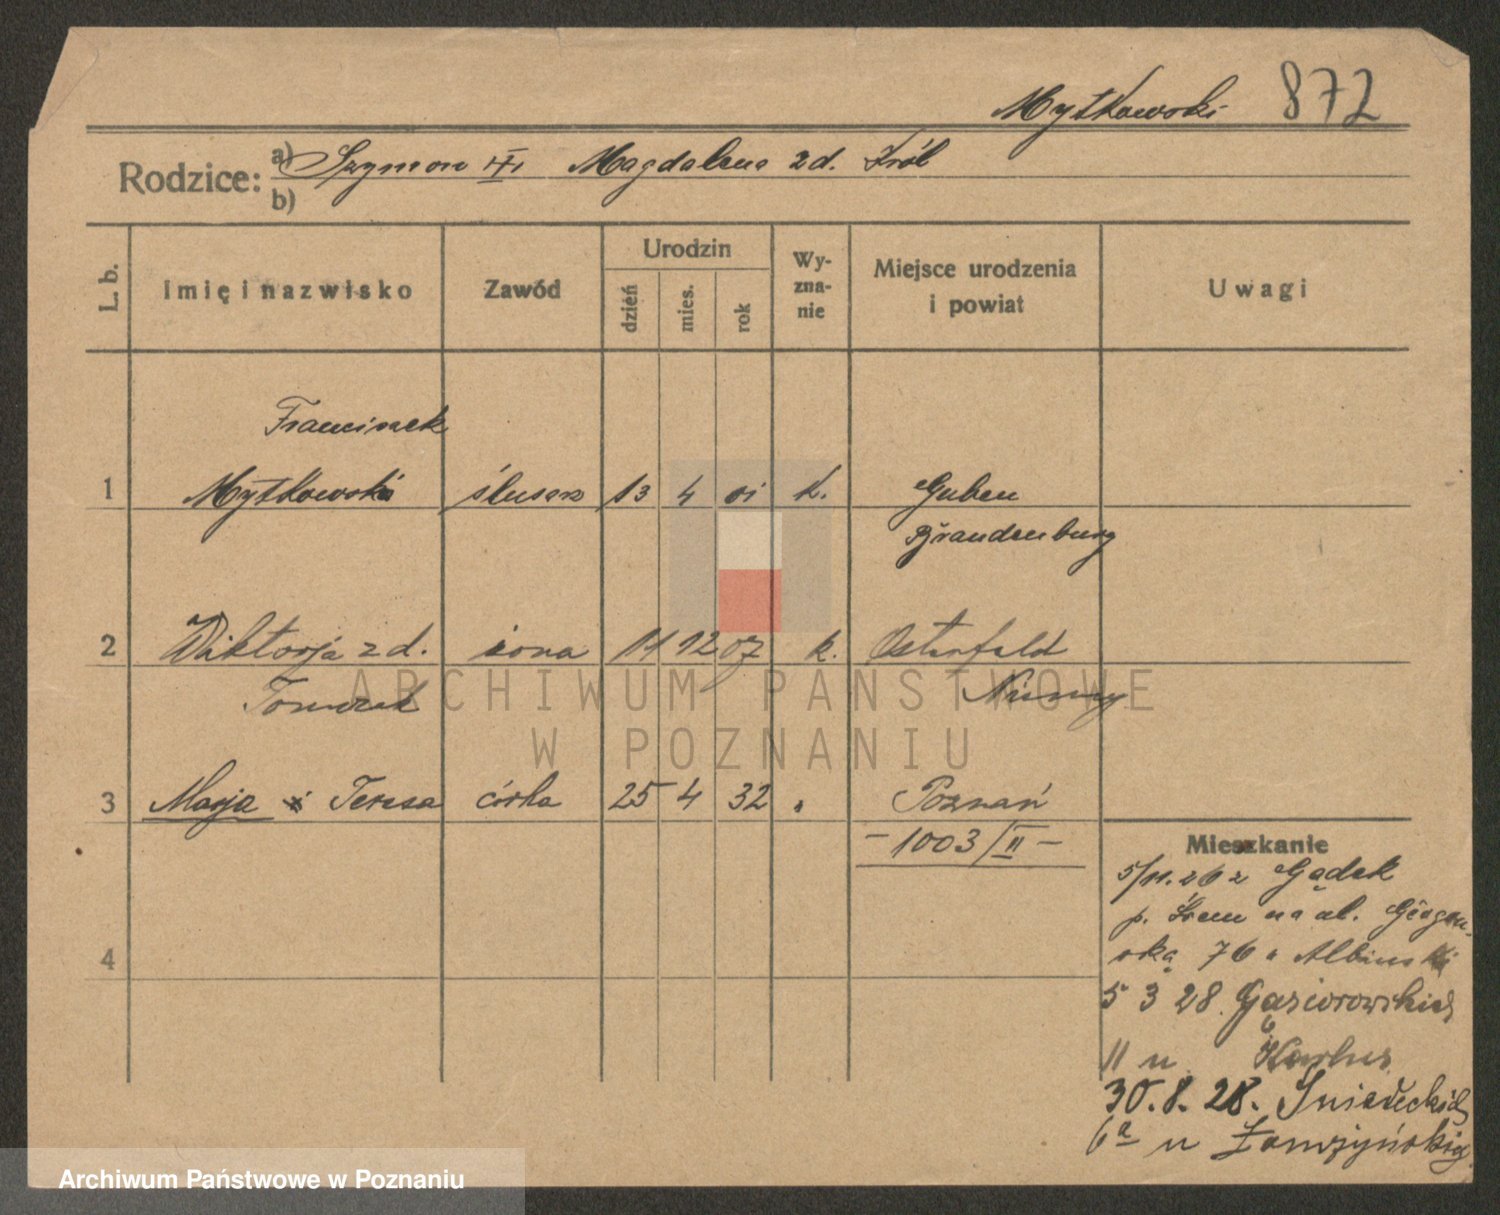 Mytkowski 872
Rodzice: a) Szymon Magdalena z d. Król
b)
L. b.
Imię i nazwisko
Zawód
Urodzin
dzień
mies.
rok
Wy-
zna-
nie
Miejsce urodzenia
i powiat
Uwagi
Franciszek
1 Mytkowski ślusarz 13 4 01 k. Guben
Brandenburg
2 Wiktorja z d. żona 11 12 07 k. Osterfeld
Tomczak Niemcy
3 Marja Teresa córka 25 4 32 Poznań
– 1003/II –
4
Mieszkanie
5/11.26 z Gądek
p. Śrem na ul. Głogow-
ską 76 u Albinski
5 3 28. Gąsiorowskich
6
11 u
30.8.28. Śniadeckich
6a u
ARCHIWUM PAŃSTWOWE
W POZNANIU
Archiwum Państwowe w Poznaniu